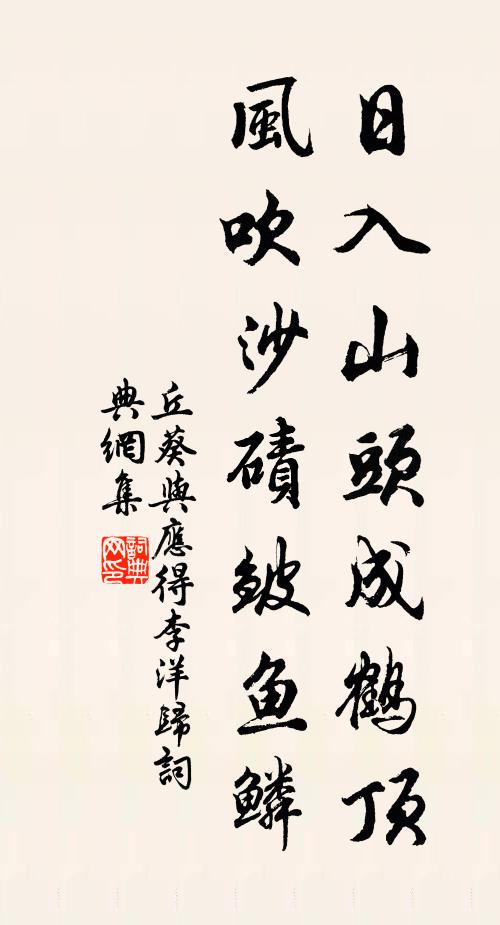 日入山頭成鶴頂
風吹沙磧皴鱼鱗
丘葵與應得李洋歸詞
典網集
詞典
网印